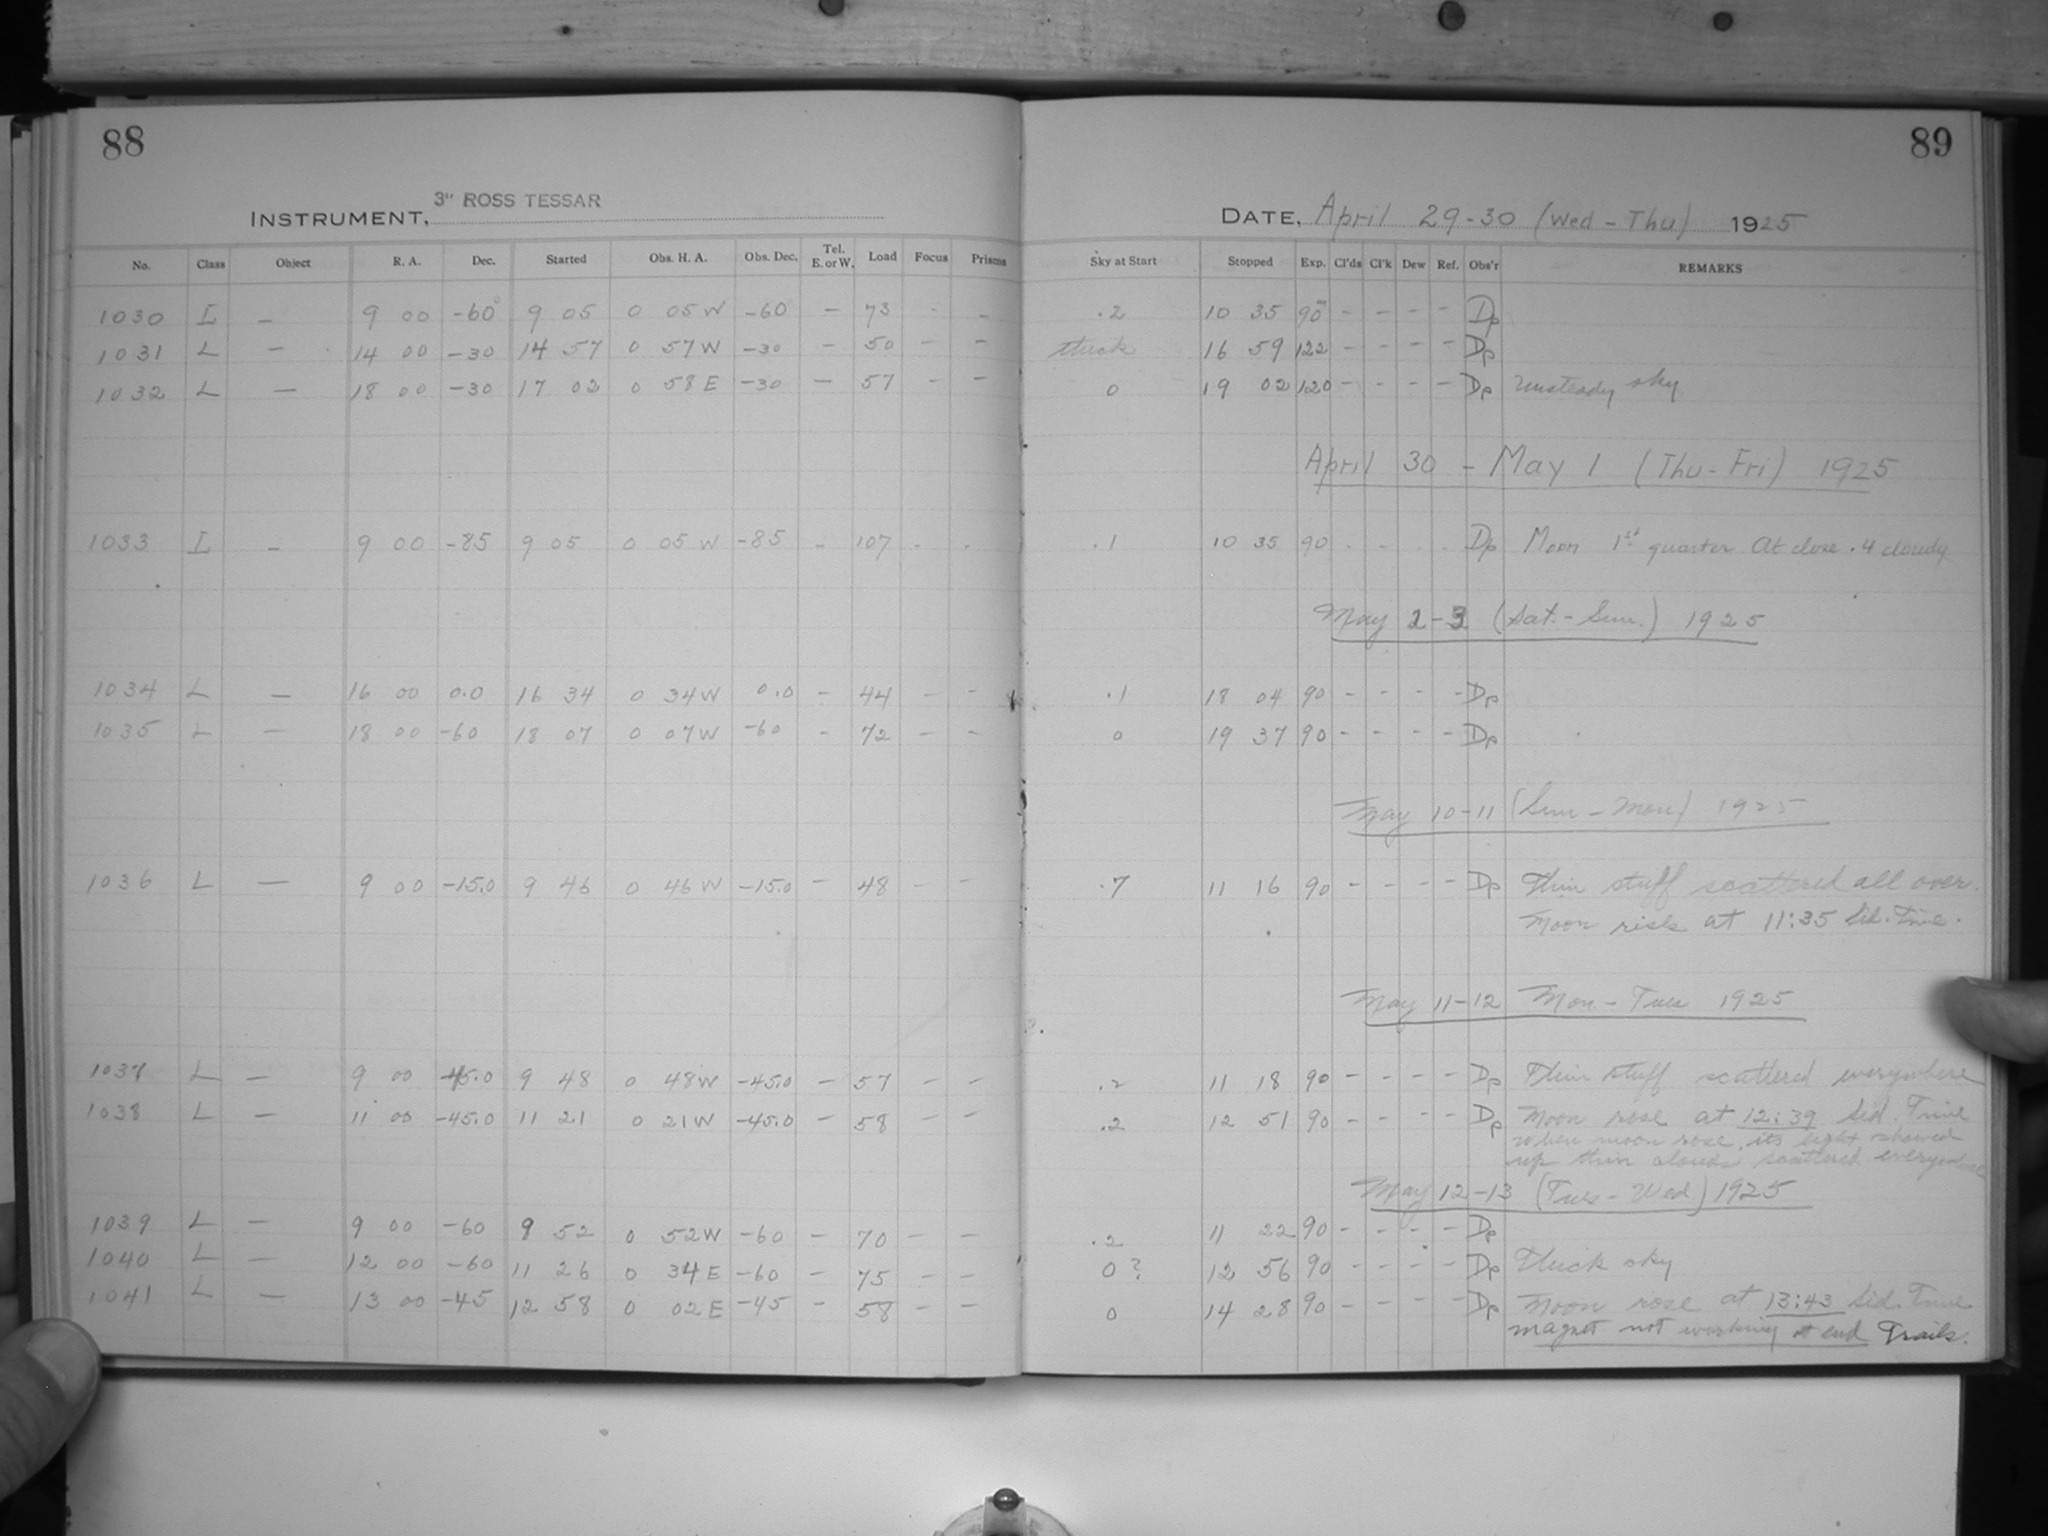 88
89
3" ROSS TESSAR
INSTRUMENT,
DATE, April 29-30 (Wed - Thu) 1925
No. Class Object R. A. Dec. Started Obs. H. A. Obs. Dec. Tel. E. or W. Load Focus Prisms Sky at Start Stopped Exp. Cl'ds Cl'k Dew Ref. Obs'r REMARKS
1030 L — 9 00 -60° 9 05 0 05 W -60 — 73 - - .2 10 35 90m - - - - Dp
1031 L — 14 00 -30 14 57 0 57 W -30 — 50 - - thick 16 59 122 - - - - Dp
1032 L — 18 00 -30 17 02 0 58 E -30 — 57 - - 0 19 02 120 - - - - Dp Unsteady sky
April 30 - May 1 (Thu - Fri) 1925
1033 L - 9 00 -85 9 05 0 05 W -85 - 107 - - .1 10 35 90 - - - - Dp Moon 1st quarter At close .4 cloudy
May 2-3 (Sat. - Sun.) 1925
1034 L — 16 00 0.0 16 34 0 34 W 0.0 - 44 - - .1 18 04 90 - - - - Dp
1035 L — 18 00 -60 18 07 0 07 W -60 - 72 - - 0 19 37 90 - - - - Dp
May 10-11 (Sun - Mon) 1925
1036 L — 9 00 -15.0 9 46 0 46 W -15.0 - 48 - - .7 11 16 90 - - - - Dp Thin stuff scattered all over.
Moon rises at 11:35 Sid. Time.
May 11-12 Mon - Tues 1925
1037 L — 9 00 -45.0 9 48 0 48 W -45.0 - 57 - - .2 11 18 90 - - - - Dp Thin stuff scattered everywhere
1038 L — 11 00 -45.0 11 21 0 21 W -45.0 - 58 - - .2 12 51 90 - - - - Dp Moon rose at 12:39 Sid. Time
When moon rose, its light showed
up thin clouds scattered everywhere
May 12-13 (Tues - Wed) 1925
1039 L — 9 00 -60 9 52 0 52 W -60 - 70 - - .2 11 22 90 - - - - Dp
1040 L — 12 00 -60 11 26 0 34 E -60 - 75 - - 0? 12 56 90 - - - - Dp Thick sky
1041 L — 13 00 -45 12 58 0 02 E -45 - 58 - - 0 14 28 90 - - - - Dp Moon rose at 13:43 Sid. Time
magnet not working at end Trails.